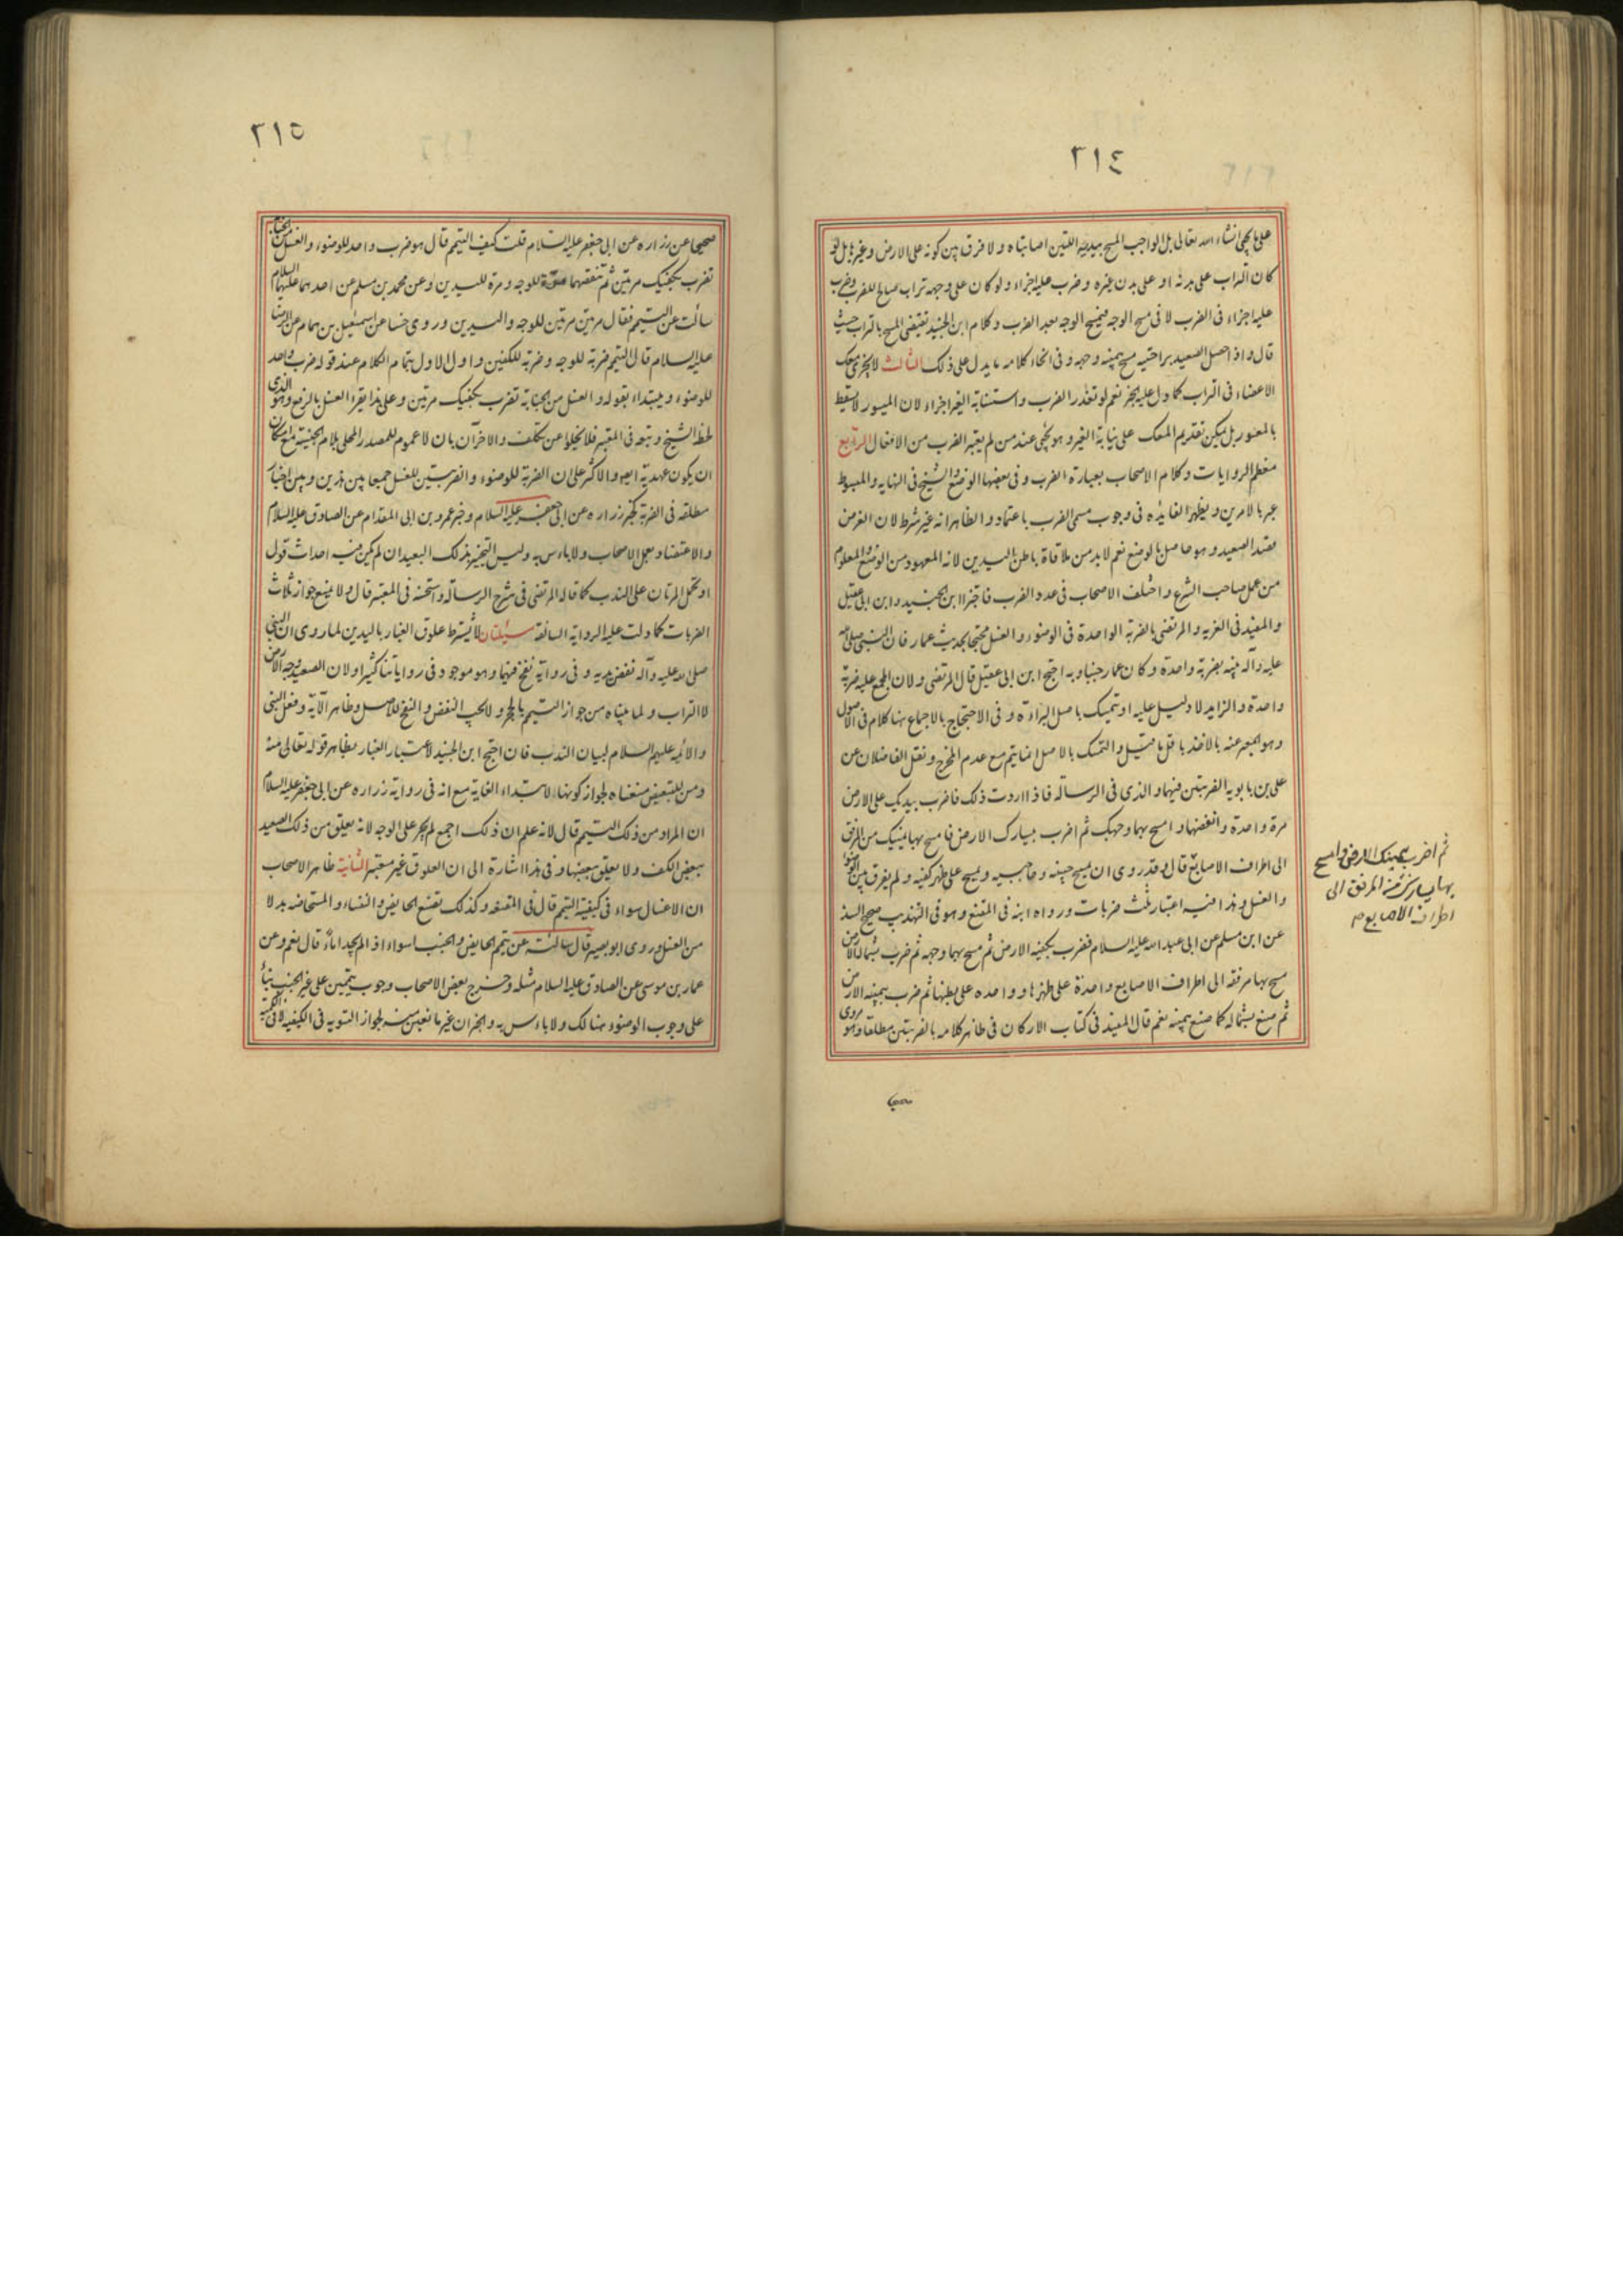 ٢١٤
على ما يجئ انشاء الله تعالى بل الواجب المسح بيديه اللتين اصابتاه ولا فرق بين كونه على الارض وغيرها بل لو
كان التراب على بدنه او على بدن غيره وضرب عليه اجزاء ولو كان على وجهه تراب صالح للضرب وضرب
عليه اجزاء فى الضرب لا فى مسح الوجه فيمسح الوجه بعد الضرب وكلام ابن الجنيد تقتضى المسح بالتراب حيث
قال واذا حصل الصعيد براحتيه مسح بيمينه وجهه وفى انحاء كلامه ما يدل على ذلك الثالث لا يجزى معك
الاعضاء فى التراب كما دل عليه الخبر نعم لو تعذر الضرب واستنابة الغير اجزاء لان الميسور لا يسقط
بالمعسور بل يمكن تقديم المعك على نيابة الغير وهو يجئ عند من لم يعتبر الضرب من الافعال الرابع
معظم الروايات وكلام الاصحاب بعبارة الضرب وفى بعضها الوضع والشيخ فى النهايه والمبسوط
عبر بالامرين ويظهر الفايده فى وجوب مسمى الضرب باعتماد والظاهر انه غير شرط لان الغرض
قصد الصعيد وهو حاصل بالوضع نعم لا بد من ملاقاة باطن اليدين لانه المعهود من الوضع والمعلوم
من عمل صاحب الشرع واختلف الاصحاب فى عدد الضرب فاجتزا ابن الجنيد وابن ابى عقيل
والمفيد فى الغريه والمرتضى بالضربة الواحدة فى الوضوء والغسل محتجا بحديث عمار فان النبى صلى الله
عليه وآله بينه بضربة واحدة وكان عمار جنبا وبه احتج ابن ابى عقيل قال المرتضى ولان المجمع عليه ضربة
واحدة والزايد لا دليل عليه او يتمسك باصل البراءة وفى الاحتجاج بالاجماع هنا كلام فى الاصول
وهو المعبر عنه بالاخذ باقل ما قيل والتمسك بالاصل انما يتم مع عدم المخرج ونقل الفاضلان عن
على بن بابويه الضربتين فيهما والذى فى الرساله فاذا اردت ذلك فاضرب بيديك على الارض
مرة واحدة وانفضهما وامسح بهما وجهك ثم اضرب بيسارك الارض فامسح بها يمينك من المرفق
الى اطراف الاصابع قال وقد روى ان يمسح جبينه وحاجبيه ويمسح على ظهر كفيه ولم يفرق بين الوضوء
والغسل وهذا فيه اعتبار ثلث ضربات ورواه ابنه فى المقنع وهو فى التهذيب صحيح السند
عن ابن مسلم عن ابى عبد الله عليه السلام فضرب بكفيه الارض ثم مسح بهما وجهه ثم ضرب بشماله الارض
مسح بها مرفقه الى اطراف الاصابع واحدة على ظهرها وواحده على بطنها ثم ضرب بيمينه الارض
ثم صنع بشماله كما صنع بيمينه نعم قال المفيد فى كتاب الاركان فى ظاهر كلامه بالضربتين مطلقا وهو مروى
ثم اضرب بيمينك الارض وامسح
بها يسارك من المرفق الى
اطراف الاصابع
٢١٥
صحيحا عن زراره عن ابى جعفر عليه السلام قلت كيف التيمم قال هو ضرب واحد للوضوء والغسل من الجنابة
تضرب بكفيك مرتين ثم تنفضهما مرة للوجه ومرة لليدين وعن محمد بن مسلم عن احدهما عليهما السلام
سالت عن التيمم فقال مرتين مرتين للوجه واليدين وروى حسا عن اسمعيل بن همام عن الرضا
عليه السلام قال التيمم ضربة للوجه وضربة للكفين واول الاول بتمام الكلام عند قوله ضرب واحد
للوضوء ويبتداء بقوله والغسل من الجنابة تضرب بكفيك مرتين وعلى هذا يقرء الغسل بالرفع وهو الذى
لحظ الشيخ وتبعه فى المعتبر فلا يخلوا عن تكلف والاخران بان لا عموم للمصدر المحلى بلام الجنسية مع امكان
ان يكون عهدية ايضا والاكثر على ان الضربة للوضوء والضربتين للغسل جمعا بين هذين وبين اخبار
مطلقه فى الضربة كخبر زراره عن ابى جعفر عليه السلام وخبر عمرو بن ابى المقدام عن الصادق عليه السلام
والاعتضاد بعمل الاصحاب ولا باءس به وليس التخيير بذلك البعيد ان لم يكن فيه احداث قول
او تحمل المرتان على الندب كما قاله المرتضى فى شرح الرسالة واستحسنه فى المعتبر قال ولا يمنع جواز ثلاث
الضربات كما دلت عليه الرواية السالفة مسئلتان لا يشترط علوق الغبار باليدين لما روى ان النبى
صلى الله عليه وآله نفض يديه وفى رواية نفخ فيهما وهو موجود فى رواياتنا كثيرا ولان الصعيد وجه الارض
لا التراب ولما بيناه من جواز التيمم بالحجر ولا يجب النفض والنفخ للاصل وظاهر الآية وفعل النبى
والائمه عليهم السلام لبيان الندب فان احتج ابن الجنيد لاعتبار الغبار بظاهر قوله تعالى منه
ومن للتبعيض منعناه لجواز كونها لابتداء الغاية مع انه فى رواية زراره عن ابى جعفر عليه السلام
ان المراد من ذلك التيمم قال لانه علم ان ذلك اجمع لم يجر على الوجه لانه يعلق من ذلك الصعيد
ببعض الكف ولا يعلق ببعضها وفى هذا اشارة الى ان العلوق غير معتبر الثانية ظاهر الاصحاب
ان الاغسال سواء فى كيفية التيمم قال فى المقنعه وكذلك تصنع الحايض والنفساء والمستحاضه بدلا
من الغسل وروى ابو بصير قال سالته عن تيمم الحايض والجنب اسواء اذا لم يجدا ماء قال نعم وعن
عمار بن موسى عن الصادق عليه السلام مثله وخرج بعض الاصحاب وجوب تيممين على غير الجنب بناء
على وجوب الوضوء هنالك ولا باءس به والخبران غير مانعين منه لجواز التسويه فى الكيفيه لا فى الكمية